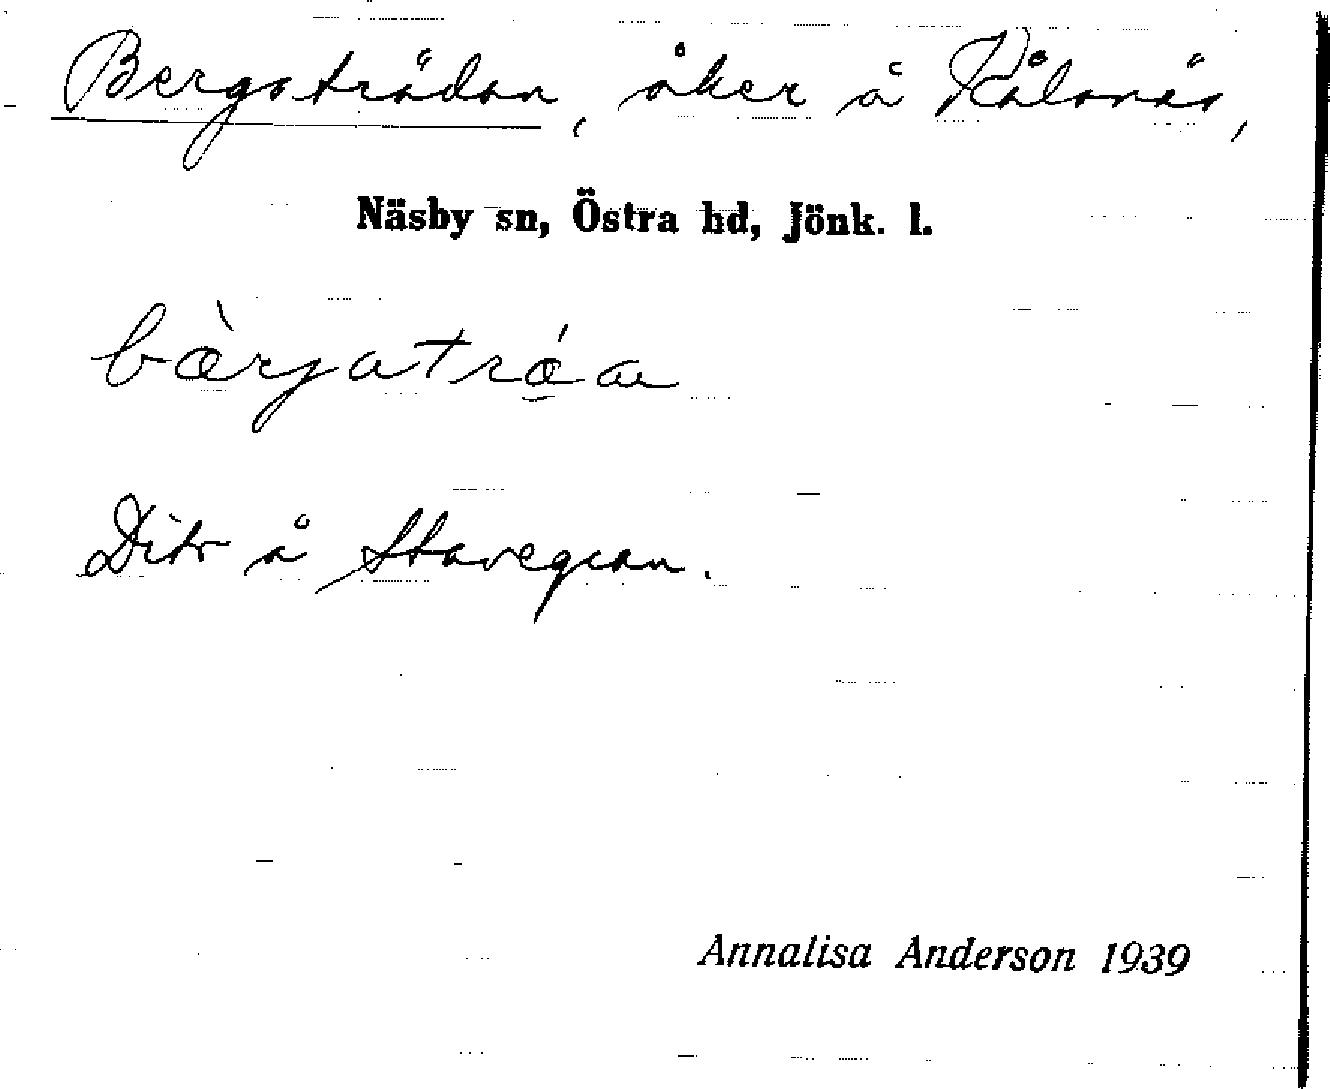 Bergaträdan, åker å Rålanäs,
Näsby sn, Östra hd, Jönk. l.
bæ̀rjatrǽa
Ditr å Stavegran.
Annalisa Anderson 1939